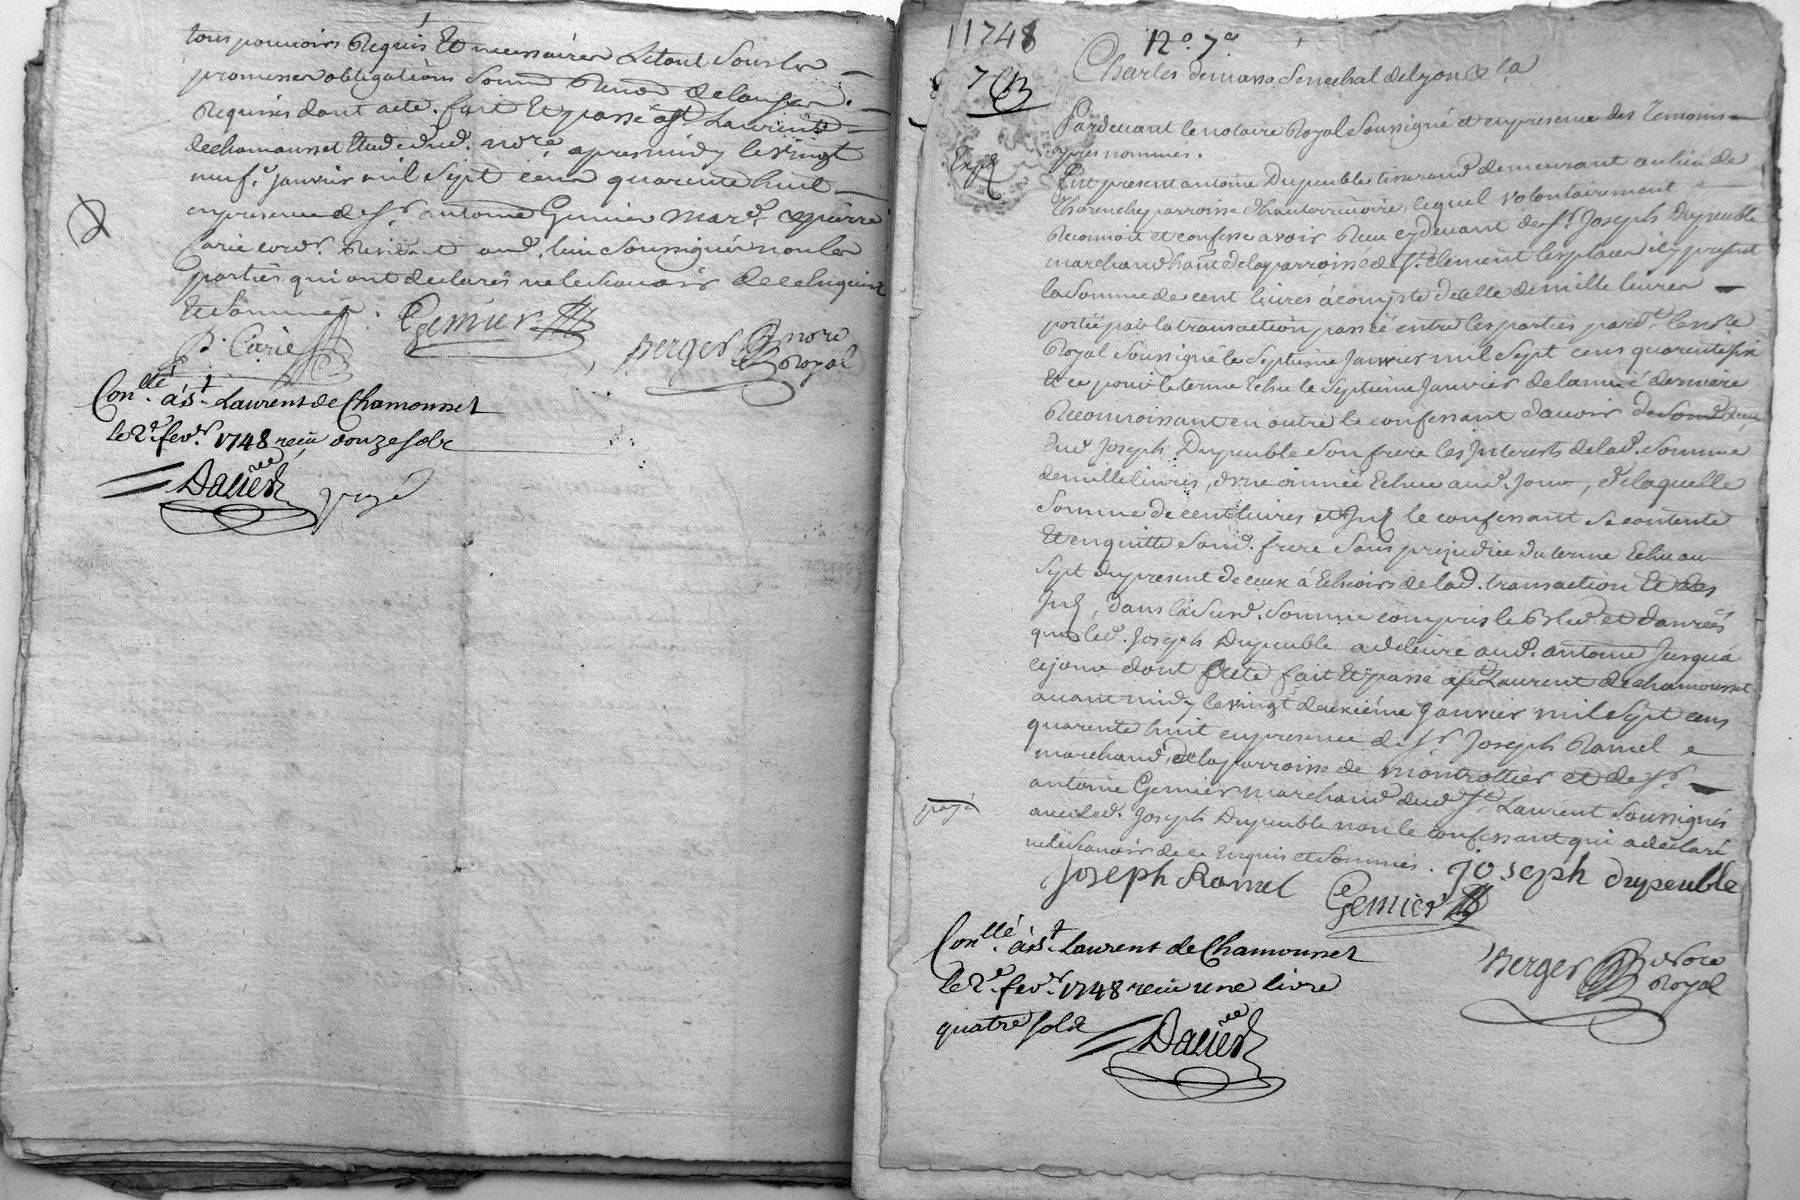 tous pouvoirs Requis Et necessaires Letout Sous les
promesses obligations Soumd. Renond. & clauses
Requises dont acte. fait Et passé a St. Laurent
dechamousset Etude dud. nore. apresmidy le vingt
neufe. janvier mil Sept cens quarente huit
enpresence de Sr. antoine Gemier Mard. & pierre
Carie cordr. Residant aud. lieu Soussignés non les
parties qui ont declarés ne le Scavoir de ce Enquises
Et Sommées.
P. Carie Gemier
Berger nore Royal
Conllé. à St. Laurent de Chamousset
le 2e. fevr. 1748 reçu douze sols
Dalier
payé
1748 No. 7e.
7
Charles demasso Senechal de lyon & la
Pardevant le notaire Royal Soussigné et enpresence des Temoins
apres nommés.
Expé
fut present antoine Dupeuble tisserand demeurant au lieu de
Thorenche parroisse d'hauterivoire, lequel volontairement
Reconnoit et confesse avoir Receu cydevant de Sr. Joseph Dupeuble
marchand habt. de la parroisse de St. Clement les places icy present
la Somme de cent livres à compte d'Celle de mille livres
portée par la transaction passée entre les parties pard. le nore
Royal Soussigné le Septieme Janvier mil Sept cens quarente six
Et ce pour le terme Echu le Septieme Janvier de l'année derniere
Reconnoissant en outre le confessant d'avoir Receu
dud. Joseph Dupeuble Son frere les Interests de lad. Somme
de mille livres, d'une année Echue aud. Jour, de laquelle
Somme de cent livres et Inst. le confessant Se contente
Et en quitte Sond. frere Sans prejudice du terme Echu au
Sept du present de ceux à Echoirs de lad. transaction Et des
Inst., dans la Susd. Somme compris le Bled et danrées
que led. Joseph Dupeuble a delivré aud. antoine Jusqu'à
cejour dont Acte fait Et passé à St. Laurent de chamousset
avant midy le vingt deuxiéme Janvier mil Sept cens
quarente huit enpresence de Sr. Joseph Ramel
marchand, de la parroisse de montrottier et de Sr.
antoine Gemier marchand dud. St. Laurent Soussignés
avec led. Joseph Dupeuble non le confessant qui a declaré
ne le Scavoir de ce Enquis et Sommés.
payé
Joseph Ramel Gemier joseph dupeuble
Berger Nore Royal
Conllé. à St. Laurent de Chamousset
le 2e. fevr. 1748 reçu une livre
quatre sols
Dalier